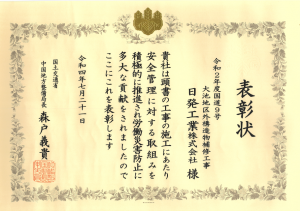 表彰状
令和2年度国道9号
大池地区外構造物補修工事
日発工業株式会社 様
貴社は頭書の工事の施工にあたり
安全管理に対する取組みを
積極的に推進され労働災害防止に
多大な貢献をされましたので
ここにこれを表彰します
令和四年七月二十一日
国土交通省
中国地方整備局長
森戸義貴